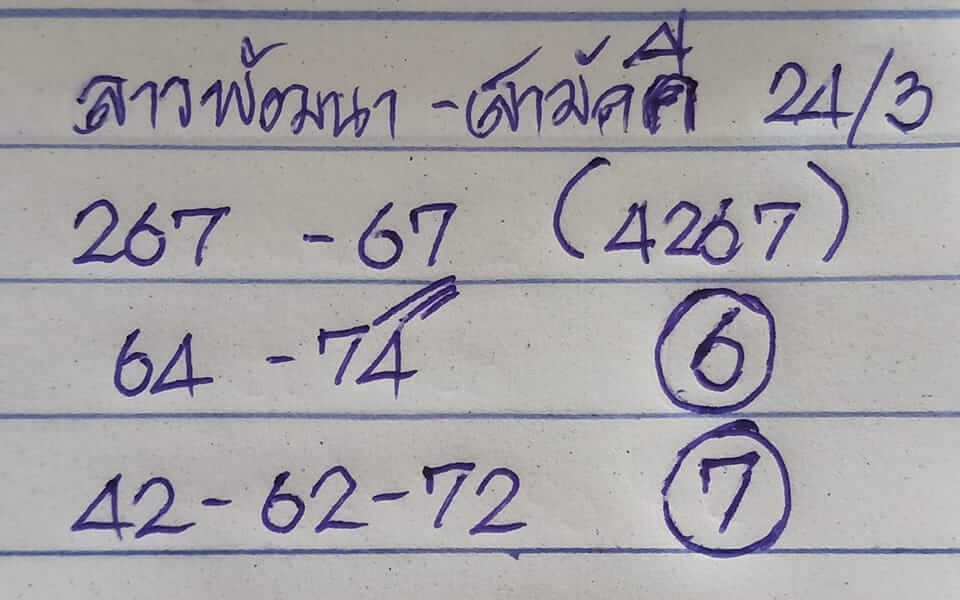 ลาวพัฒนา - สามัคคี 24/3
267 - 67 (4267)
64 - 74 6
42 - 62 - 72 7